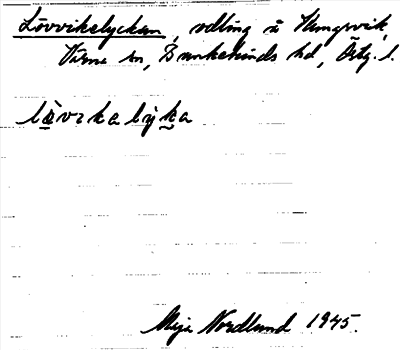 Lövvikelyckan, odling å Kungsvik,
Värna sn, Bankekinds hd, Östg. l.
lövikalyka
Maja Nordlund 1945.